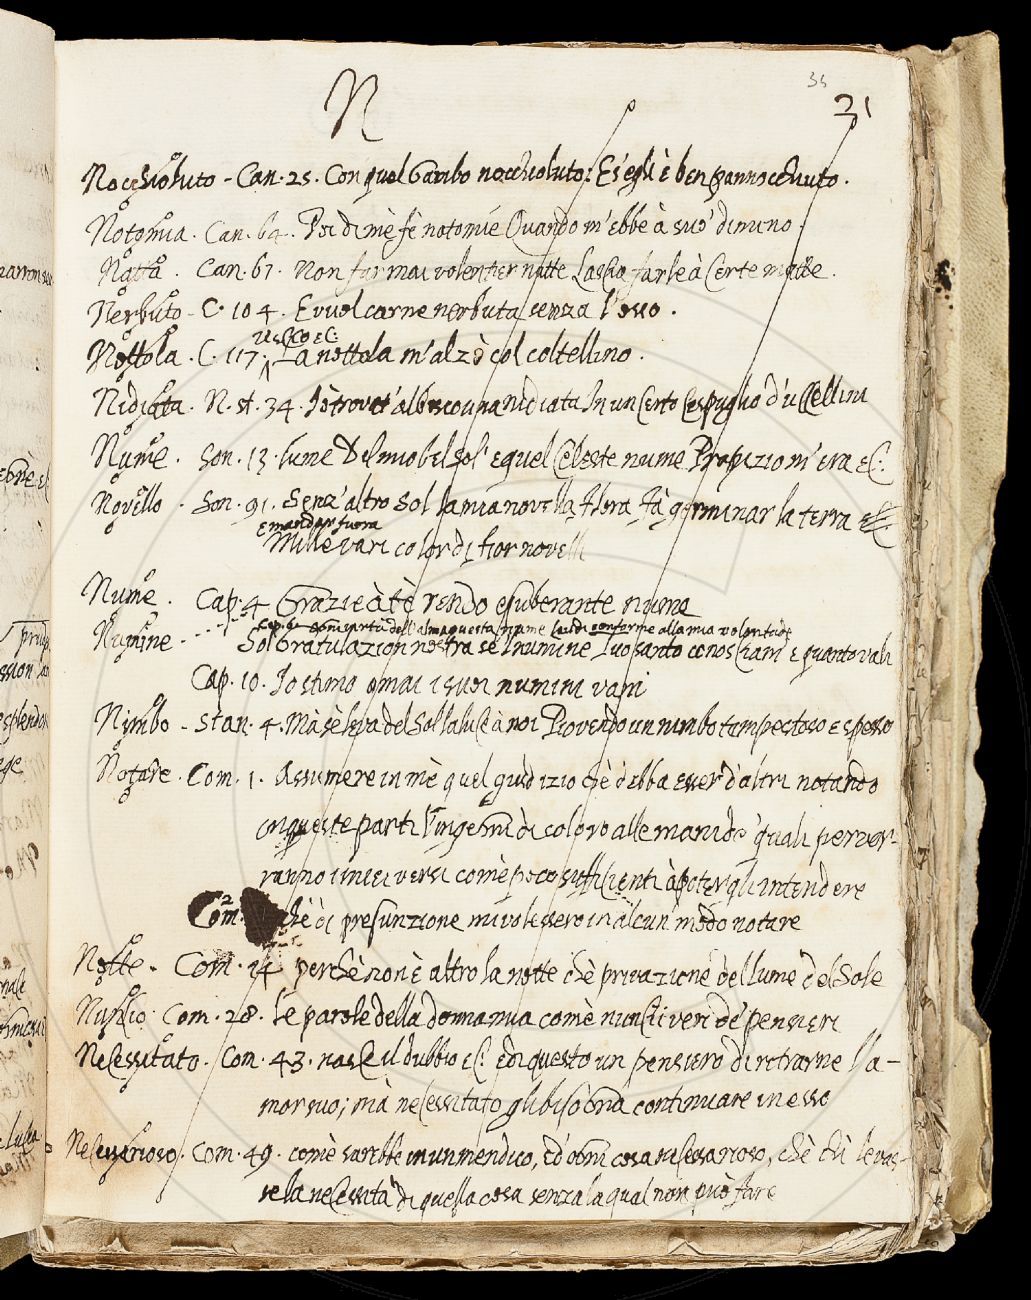 35
21
N
Nocchioluto - Can. 25. Con quel Garbo nocchioluto; Es'egli è ben pannocchiuto.
Notomia. Can. 64. Poi di mè fè notomie Quando m'ebbe à suo dimino.
Natta. Can. 67. Non far mai volentier natte Lascia farle à Certe matte.
Nerbuto - C. 104. E vuol carne nerbuta senza l'osso.
Uscico ec:
Nottola. C. 117. La nottola m'alzò col coltellino.
Nidiata. N. st. 34. Io trovat' al bosco una nidiata In un Certo Cespuglio d'uccellini
Nume. Son. 13. lume Del mio bel sol' e quel Celeste nume Propizio m'era ec:
Novello. Son. 91. Senz'altro sol la mia novella Flora Fà germinar la terra ec
e mandar fuora
Mille vari color di fior novelli
Nume. Cap. 4 Grazie à tè rendo esuberante nume
alma questa nume conforme alla mia volontade
Numine - Gratulazion nostra se'l numine Tuo santo conosciam' e quanto vali
Cap. 10. Io stimo omai i suoi numini vani
Nimbo - Stan. 4. Mà sè leva del Sol la luce à noi Piovendo un nimbo tempestoso e spesso
Notare. Com. 1. Assumere in mè quel giudizio chè debba esser d'altri notando
in queste parti l'ingegni di coloro alle mani de' quali perver-
ranno i miei versi comè poco sufficienti à poter gli intendere
Com. 2 chè di presunzione mi volessero in alcun modo notare
Notte - Com. 14 perchè non è altro la notte chè privazione del lume del Sole
Nunzio. Com. 28. le parole della donna mia comè nunzii veri de' pensieri
Necessitato. Com. 43. nasce il dubbio ec: e di questo un pensiero di ritrarne l'a-
mor suo; mà necessitato gli bisogna continuare in esso
Necessarioso. Com. 49. comè sarebbe in un mendico, ed' ogni cosa necessarioso, chè chi levas-
se la necessità di quella cosa senza la qual non può fare